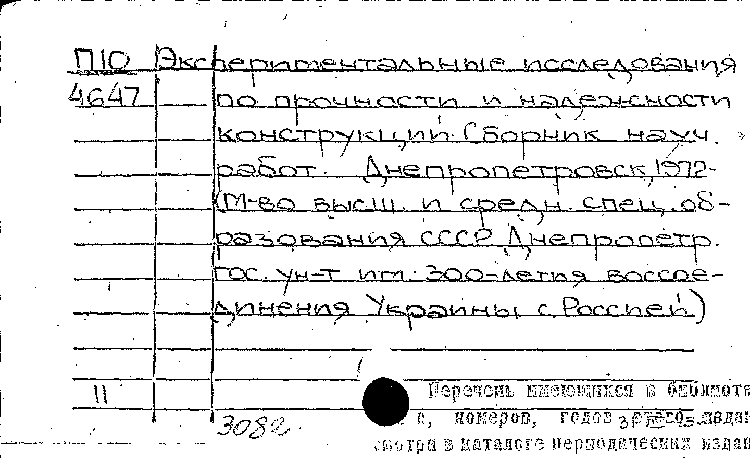 П10 Экспериментальные исследования
4647 по прочности и надежности
конструкций. Сборник науч.
работ. Днепропетровск, 1972-
(М-во высш. и средн. спец. об-
разования СССР. Днепропетр.
гос. ун-т им. 300-летия воссое-
динения Украины с Россией)
11
Перечень имеющихся в библиоте
номеров, годов
3082
смотри в каталоге периодических издан